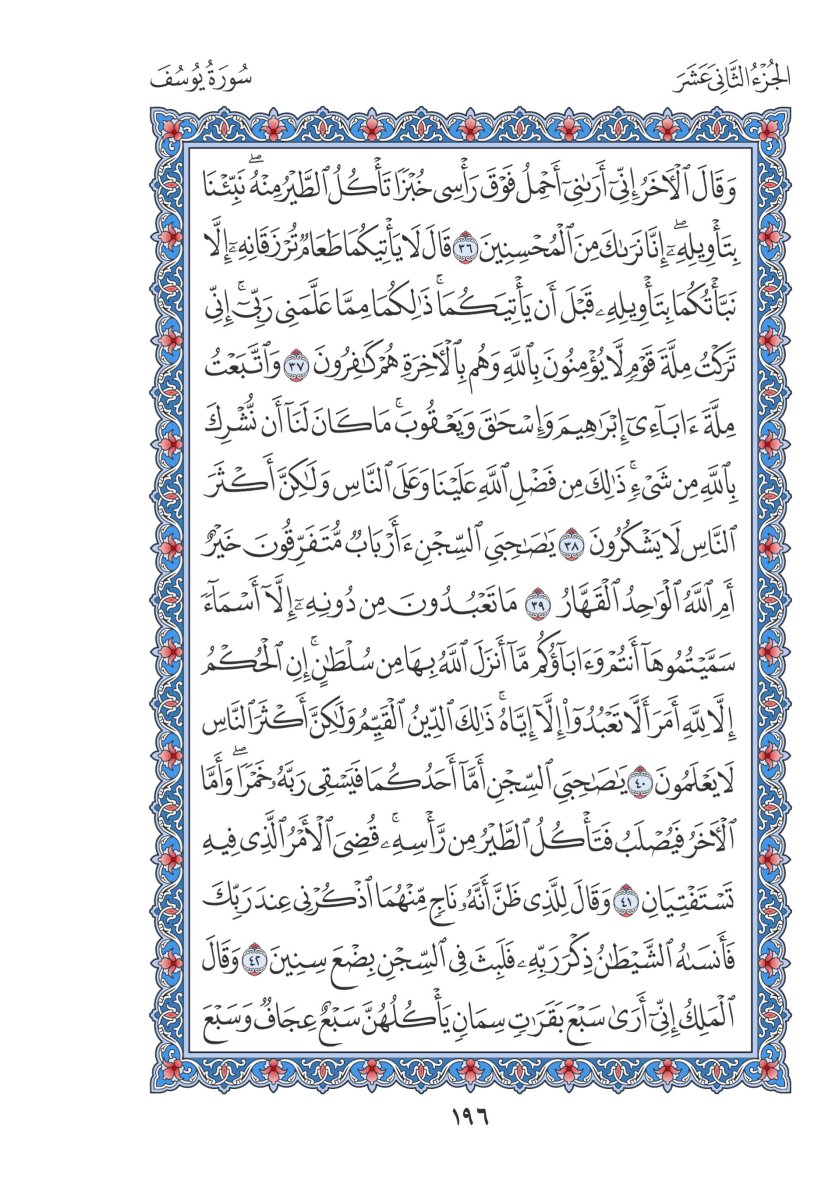 الجُزْءُ الثَّانِيَ عَشَرَ
سُورَةُ يُوسُفَ
وَقَالَ ٱلْأٓخَرُ إِنِّيٓ أَرَىٰنِيٓ أَحْمِلُ فَوْقَ رَأْسِي خُبْزٗا تَأْكُلُ ٱلطَّيْرُ مِنْهُۖ نَبِّئْنَا
بِتَأْوِيلِهِۦٓۖ إِنَّا نَرَىٰكَ مِنَ ٱلْمُحْسِنِينَ ٣٦ قَالَ لَا يَأْتِيكُمَا طَعَامٞ تُرْزَقَانِهِۦٓ إِلَّا
نَبَّأْتُكُمَا بِتَأْوِيلِهِۦ قَبْلَ أَن يَأْتِيَكُمَاۚ ذَٰلِكُمَا مِمَّا عَلَّمَنِي رَبِّيٓۚ إِنِّي
تَرَكْتُ مِلَّةَ قَوْمٖ لَّا يُؤْمِنُونَ بِٱللَّهِ وَهُم بِٱلْأٓخِرَةِ هُمْ كَٰفِرُونَ ٣٧ وَٱتَّبَعْتُ
مِلَّةَ ءَابَآءِيٓ إِبْرَٰهِيمَ وَإِسْحَٰقَ وَيَعْقُوبَۚ مَا كَانَ لَنَآ أَن نُّشْرِكَ
بِٱللَّهِ مِن شَيْءٖۚ ذَٰلِكَ مِن فَضْلِ ٱللَّهِ عَلَيْنَا وَعَلَى ٱلنَّاسِ وَلَٰكِنَّ أَكْثَرَ
ٱلنَّاسِ لَا يَشْكُرُونَ ٣٨ يَٰصَٰحِبَيِ ٱلسِّجْنِ ءَأَرْبَابٞ مُّتَفَرِّقُونَ خَيْرٌ
أَمِ ٱللَّهُ ٱلْوَٰحِدُ ٱلْقَهَّارُ ٣٩ مَا تَعْبُدُونَ مِن دُونِهِۦٓ إِلَّآ أَسْمَآءٗ
سَمَّيْتُمُوهَآ أَنتُمْ وَءَابَآؤُكُم مَّآ أَنزَلَ ٱللَّهُ بِهَا مِن سُلْطَٰنٍۚ إِنِ ٱلْحُكْمُ
إِلَّا لِلَّهِ أَمَرَ أَلَّا تَعْبُدُوٓاْ إِلَّآ إِيَّاهُۚ ذَٰلِكَ ٱلدِّينُ ٱلْقَيِّمُ وَلَٰكِنَّ أَكْثَرَ ٱلنَّاسِ
لَا يَعْلَمُونَ ٤٠ يَٰصَٰحِبَيِ ٱلسِّجْنِ أَمَّآ أَحَدُكُمَا فَيَسْقِي رَبَّهُۥ خَمْرٗاۖ وَأَمَّا
ٱلْأٓخَرُ فَيُصْلَبُ فَتَأْكُلُ ٱلطَّيْرُ مِن رَّأْسِهِۦۚ قُضِيَ ٱلْأَمْرُ ٱلَّذِي فِيهِ
تَسْتَفْتِيَانِ ٤١ وَقَالَ لِلَّذِي ظَنَّ أَنَّهُۥ نَاجٖ مِّنْهُمَا ٱذْكُرْنِي عِندَ رَبِّكَ
فَأَنسَىٰهُ ٱلشَّيْطَٰنُ ذِكْرَ رَبِّهِۦ فَلَبِثَ فِي ٱلسِّجْنِ بِضْعَ سِنِينَ ٤٢ وَقَالَ
ٱلْمَلِكُ إِنِّيٓ أَرَىٰ سَبْعَ بَقَرَٰتٖ سِمَانٖ يَأْكُلُهُنَّ سَبْعٌ عِجَافٞ وَسَبْعَ
١٩٦